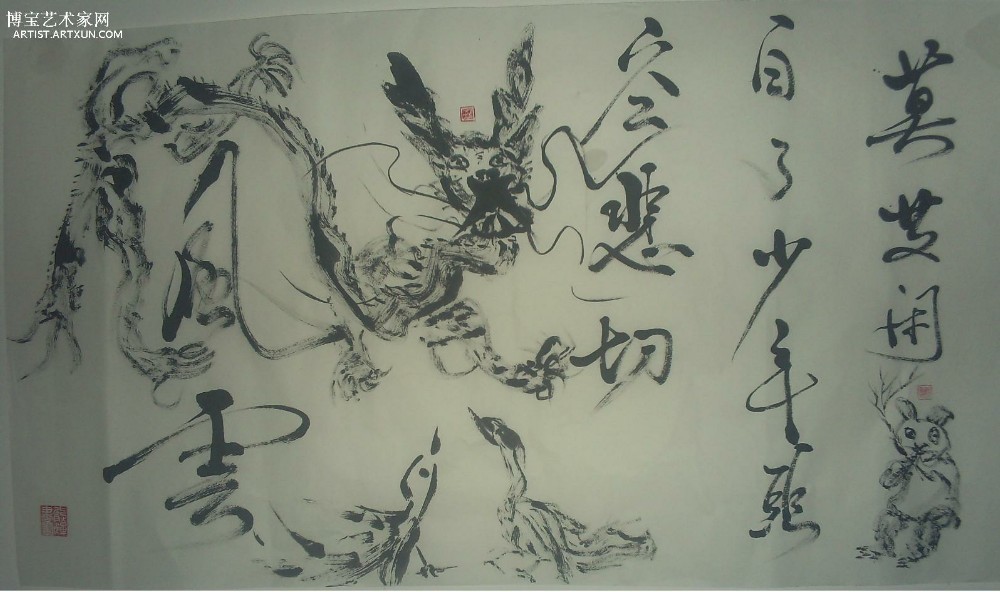 博宝艺术家网
ARTIST.ARTXUN.COM
莫等闲
白了少年頭
空悲切
風雲